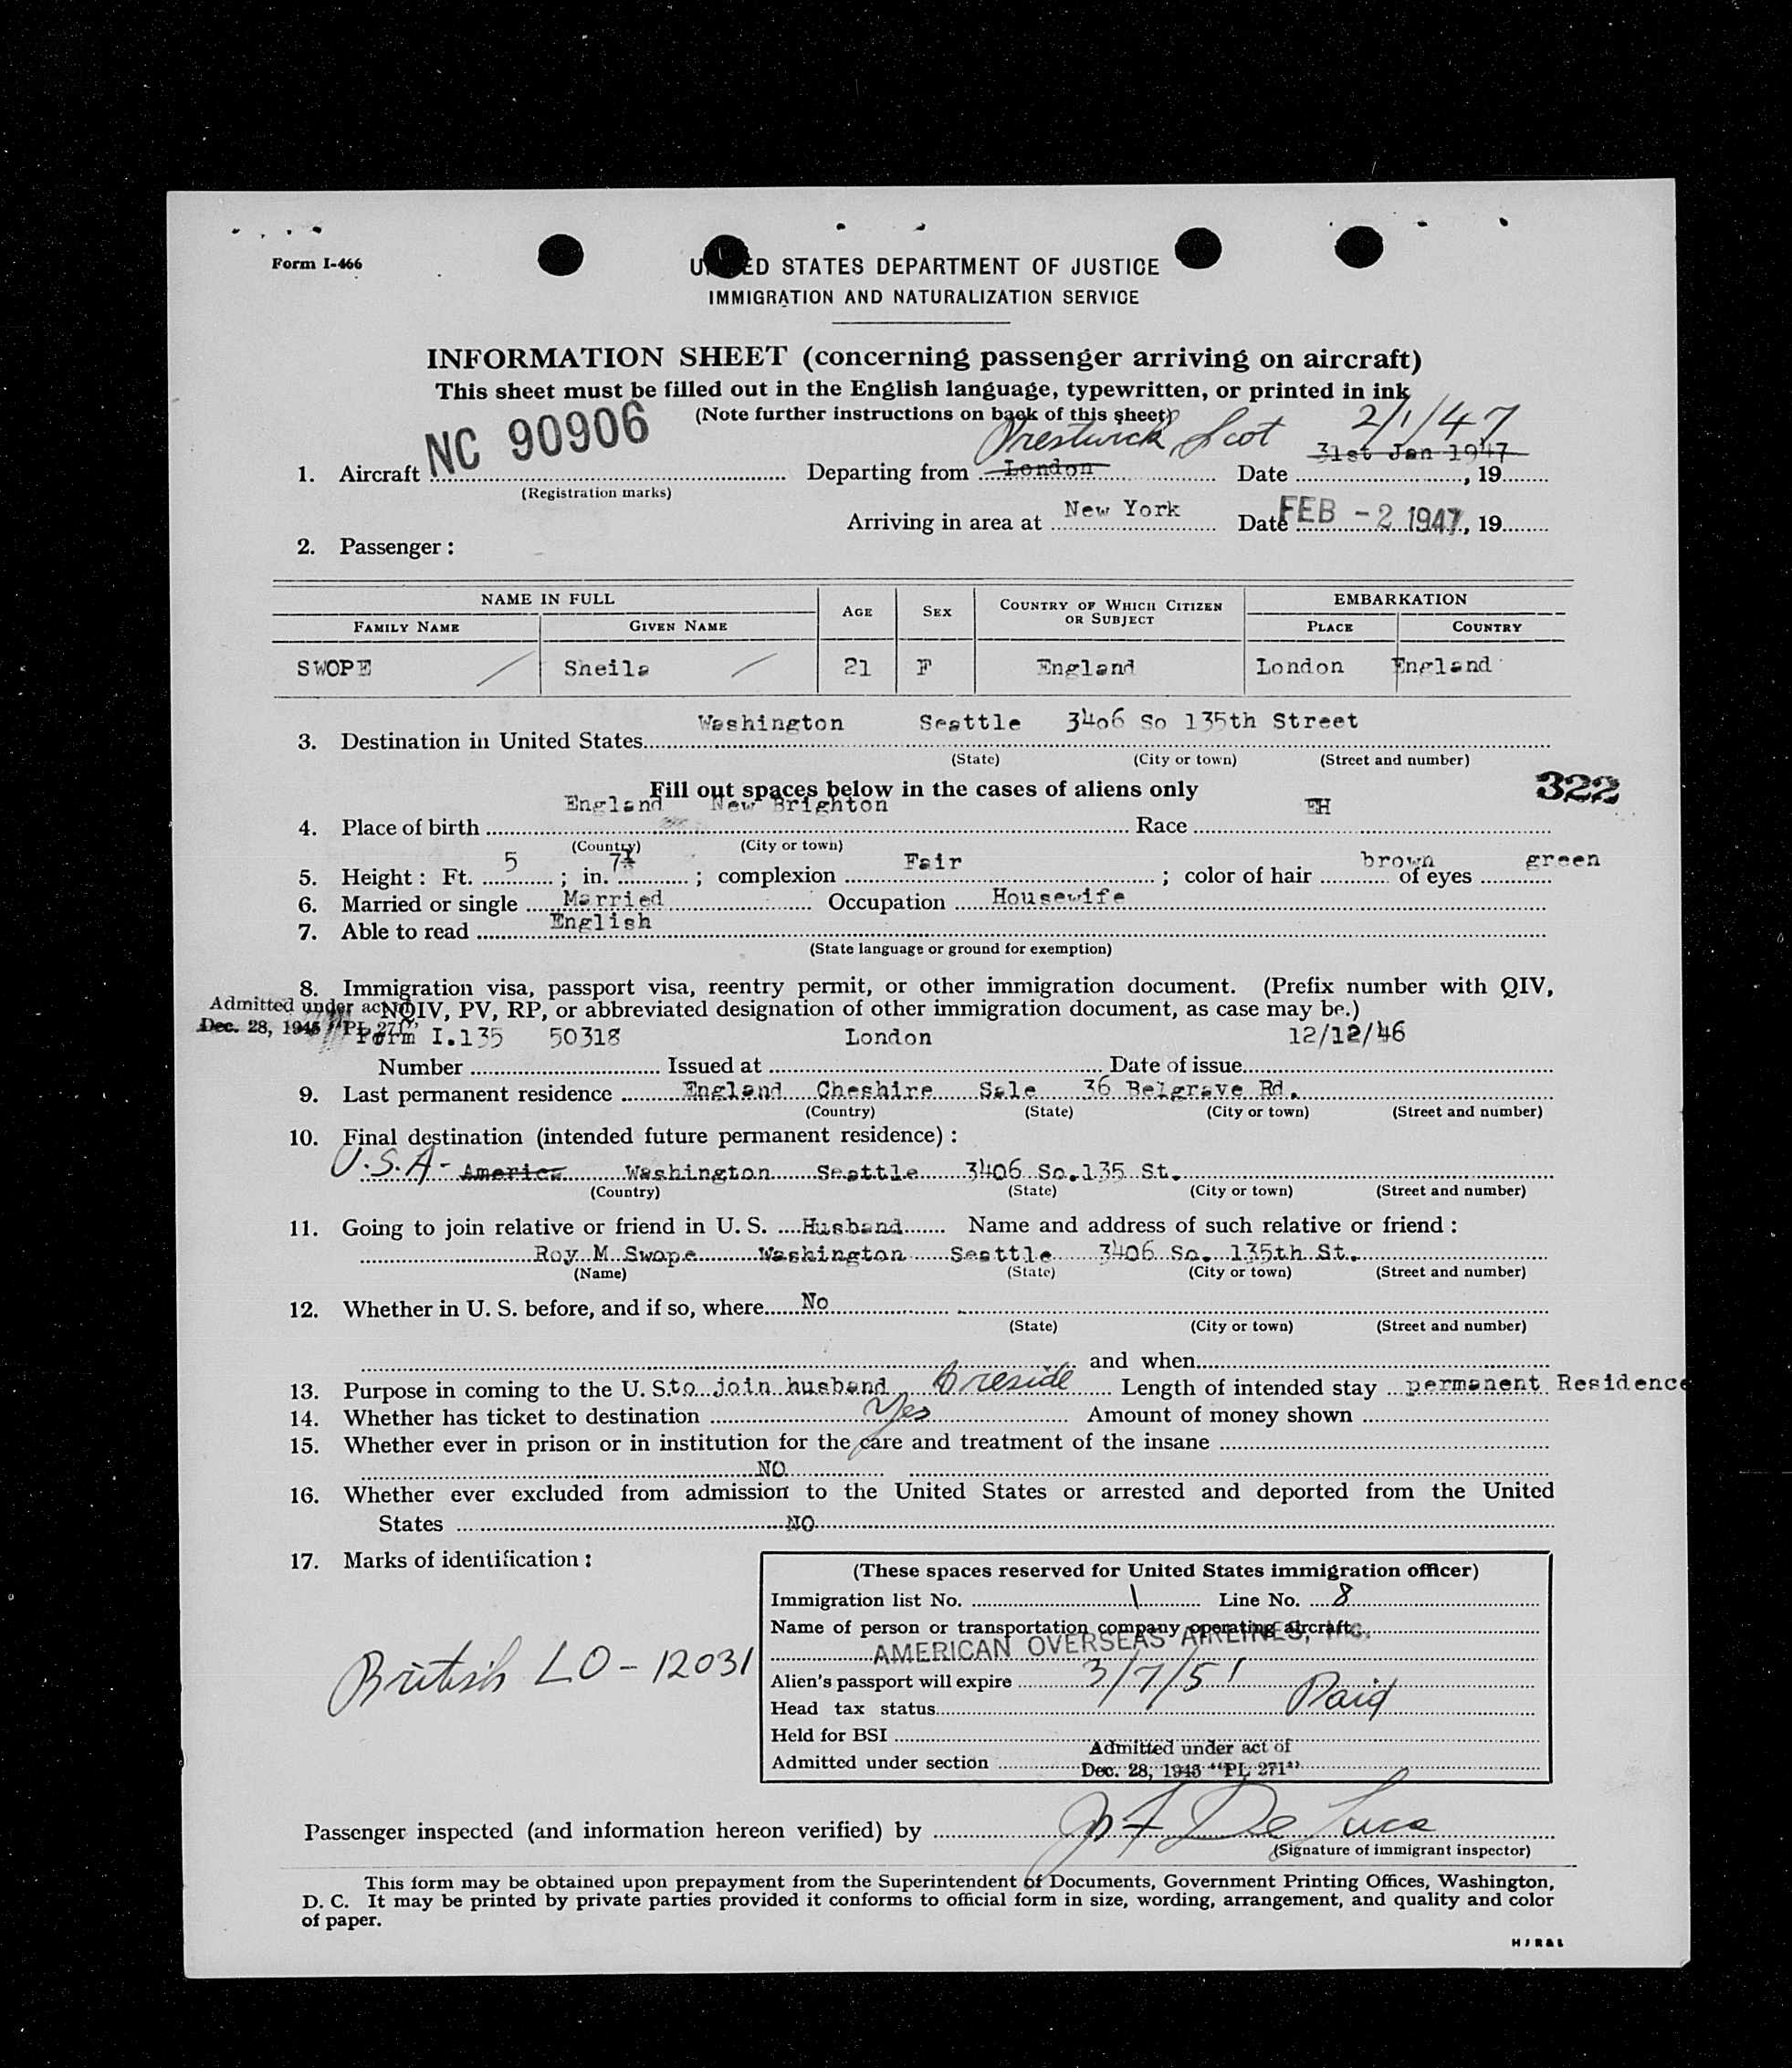 Form I-466
UNITED STATES DEPARTMENT OF JUSTICE
IMMIGRATION AND NATURALIZATION SERVICE
INFORMATION SHEET (concerning passenger arriving on aircraft)
This sheet must be filled out in the English language, typewritten, or printed in ink
(Note further instructions on back of this sheet)
Prestwick, Scot 2/1/47
1. Aircraft NC 90906 Departing from London Date 31st Jan 1947, 19
(Registration marks)
Arriving in area at New York Date FEB -2 1947, 19
2. Passenger:
NAME IN FULL AGE SEX COUNTRY OF WHICH CITIZEN OR SUBJECT EMBARKATION
FAMILY NAME GIVEN NAME PLACE COUNTRY
SWOPE Sheila 21 F England London England
Washington Seattle 3406 So 135th Street
3. Destination in United States
(State) (City or town) (Street and number)
Fill out spaces below in the cases of aliens only 322
England New Brighton EH
4. Place of birth Race
(Country) (City or town)
5. Height: Ft. 5; in. 7½; complexion Fair; color of hair brown of eyes green
6. Married or single Married Occupation Housewife
7. Able to read English
(State language or ground for exemption)
8. Immigration visa, passport visa, reentry permit, or other immigration document. (Prefix number with QIV,
Admitted under act NQIV, PV, RP, or abbreviated designation of other immigration document, as case may be.)
Dec. 28, 1945 "PL 271"
Form I.135 50318 London 12/12/46
Number Issued at Date of issue
9. Last permanent residence England Cheshire Sale 36 Belgrave Rd.
(Country) (State) (City or town) (Street and number)
10. Final destination (intended future permanent residence):
U.S.A- America Washington Seattle 3406 So.135 St.
(Country) (State) (City or town) (Street and number)
11. Going to join relative or friend in U. S. Husband Name and address of such relative or friend:
Roy M Swope Washington Seattle 3406 So. 135th St.
(Name) (State) (City or town) (Street and number)
12. Whether in U. S. before, and if so, where No
(State) (City or town) (Street and number)
and when
13. Purpose in coming to the U. S. to join husband reside Length of intended stay permanent Residence
14. Whether has ticket to destination Yes Amount of money shown
15. Whether ever in prison or in institution for the care and treatment of the insane
NO
16. Whether ever excluded from admission to the United States or arrested and deported from the United
States NO
17. Marks of identification:
(These spaces reserved for United States immigration officer)
Immigration list No. 1 Line No. 8
Name of person or transportation company operating aircraft
AMERICAN OVERSEAS AIRLINES, Inc.
British LO-12031
Alien's passport will expire 3/7/51
Head tax status Paid
Held for BSI
Admitted under act of
Admitted under section Dec. 28, 1945 "PL 271"
Passenger inspected (and information hereon verified) by De Luca
(Signature of immigrant inspector)
This form may be obtained upon prepayment from the Superintendent of Documents, Government Printing Offices, Washington,
D. C. It may be printed by private parties provided it conforms to official form in size, wording, arrangement, and quality and color
of paper.